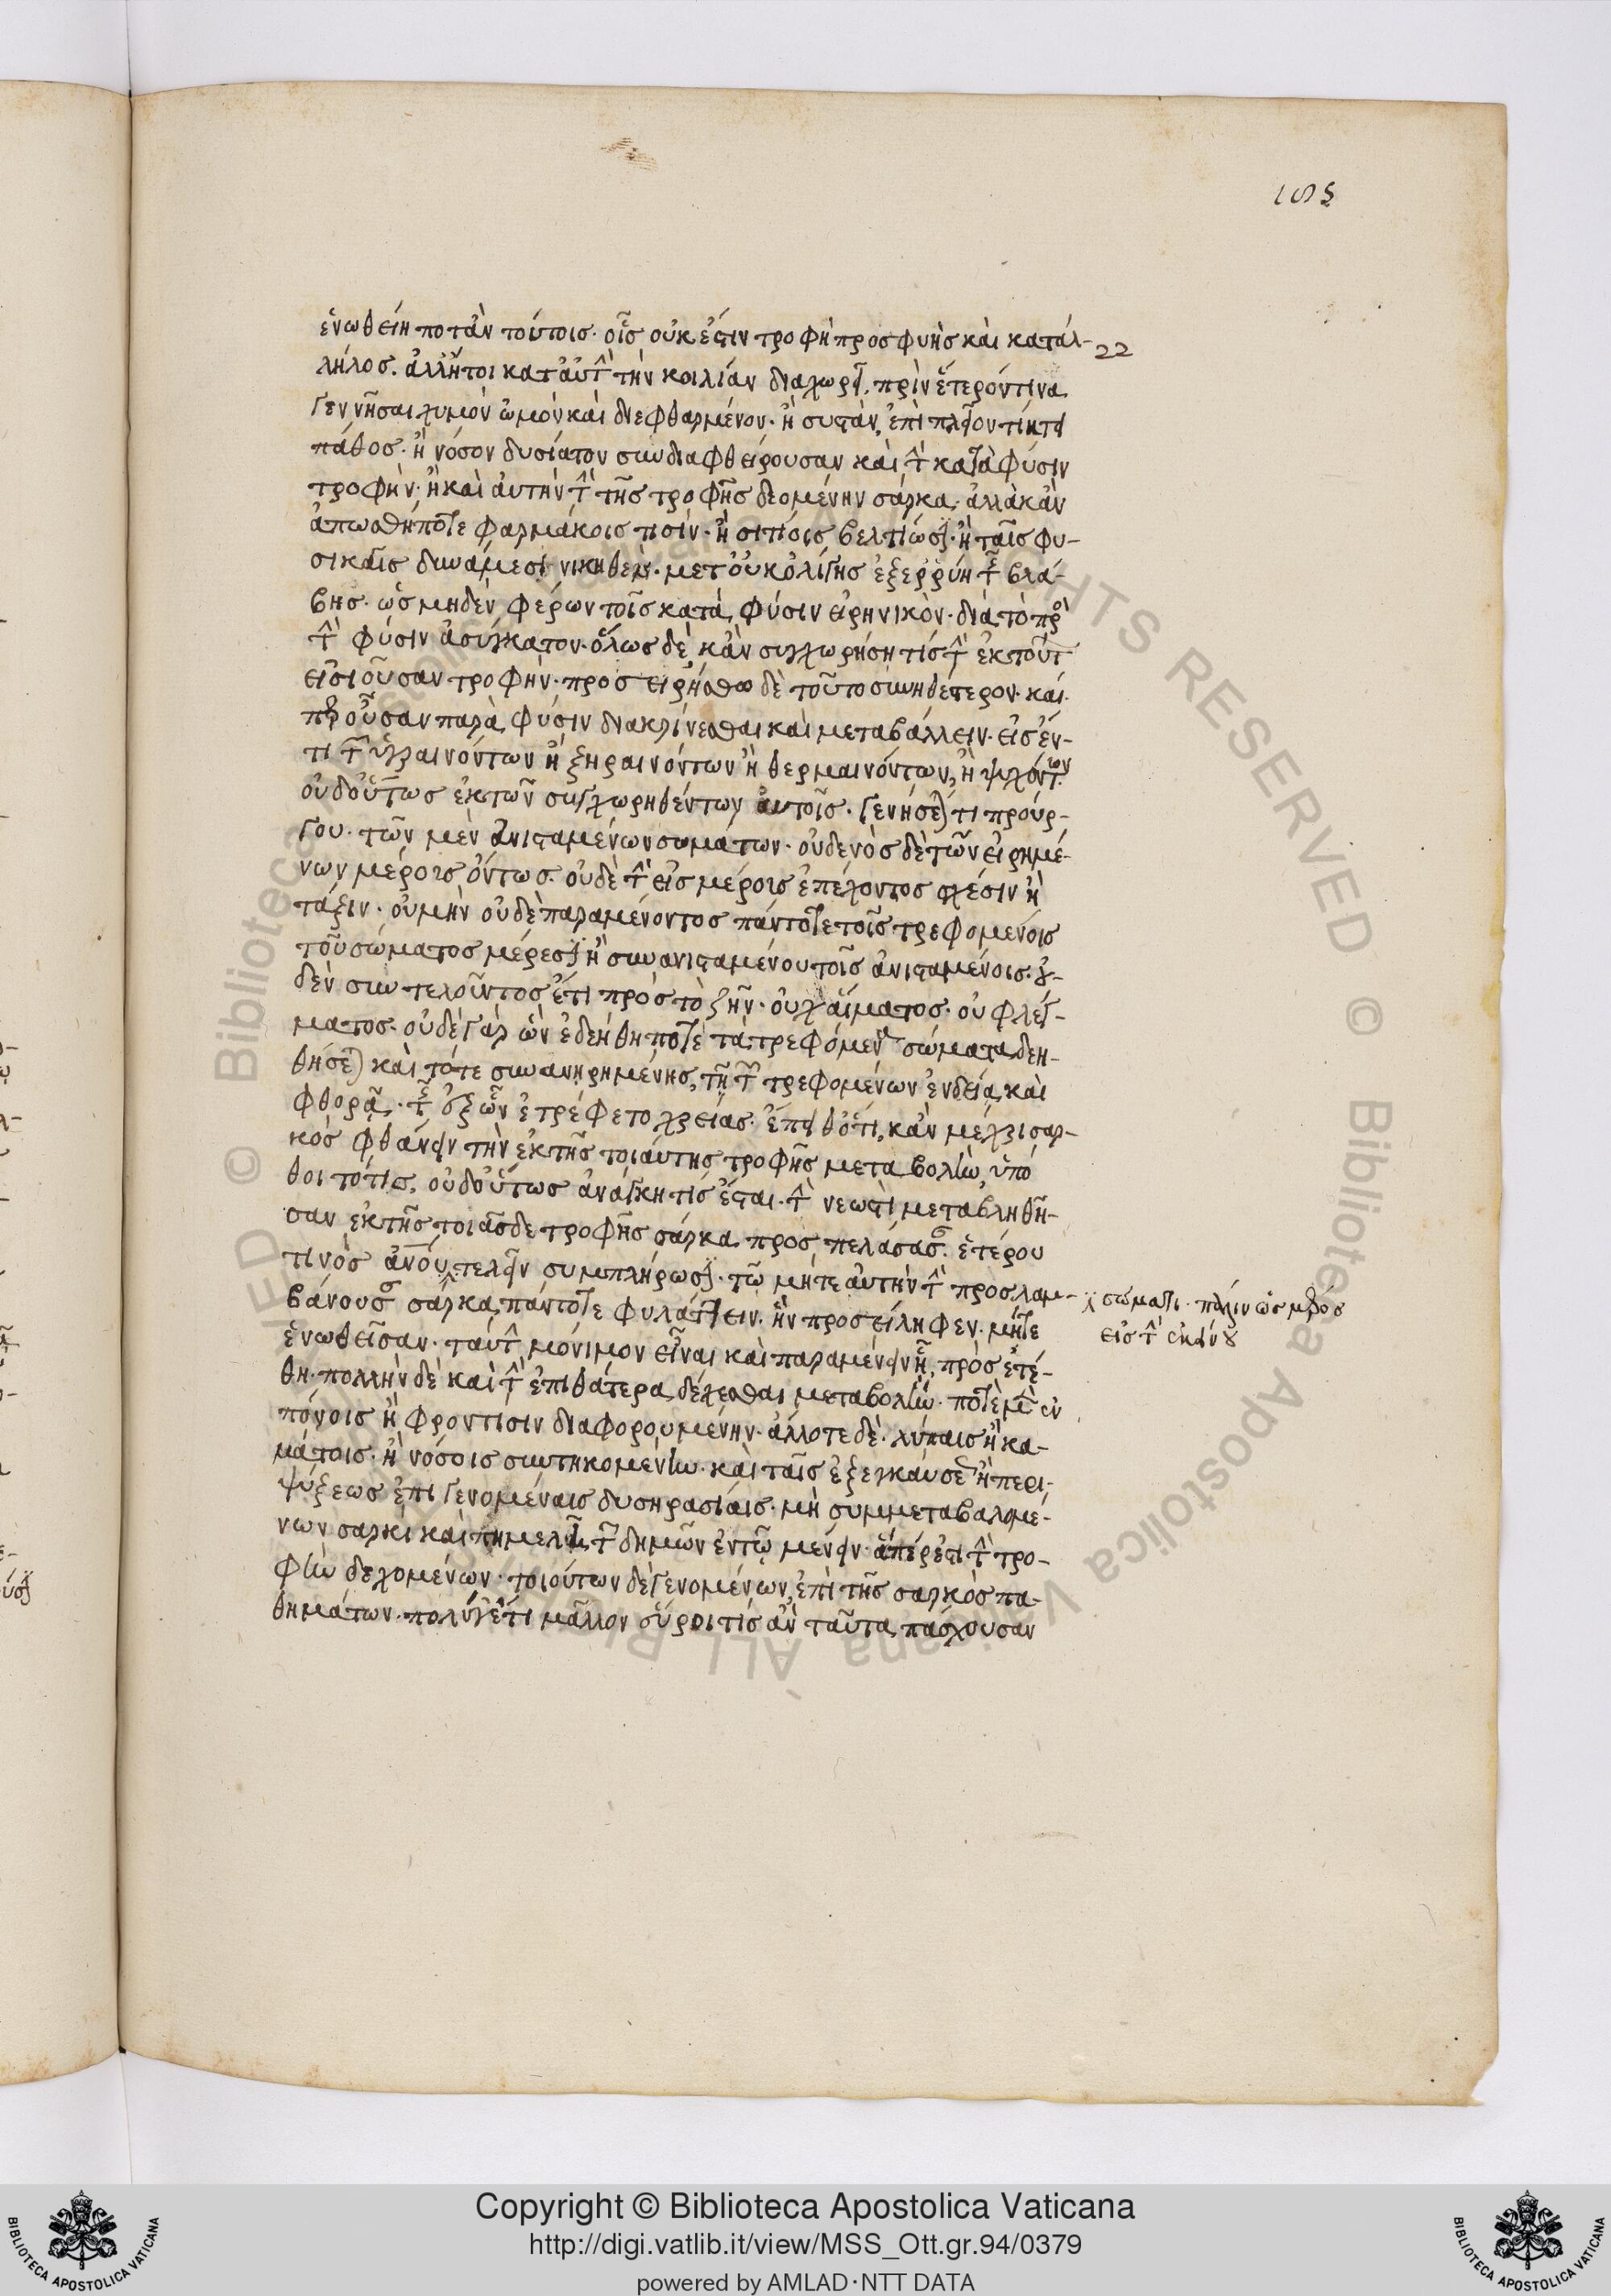 ιϛϛ
ἑνωθείη ποτ' ἂν τούτοις· οἷς οὐκ ἔστιν τροφὴ προσφυὴς καὶ κατάλ-
22
ληλος. ἀλλ' ἤτοι κατ' αὐτὴν τὴν κοιλίαν διαχωρεῖ, πρὶν ἕτερόν τινα
γεννῆσαι χυμὸν ὠμὸν καὶ διεφθαρμένον· ἢ συστὰν, ἐπὶ πλεῖον τίκτει
πάθος· ἢ νόσον δυσίατον συνδιαφθείρουσαν καὶ τὴν κατὰ φύσιν
τροφὴν· ἢ καὶ αὐτὴν τὴν τῆς τροφῆς δεομένην σάρκα· ἀλλὰ κἂν
ἀπωσθῇ ποτε φαρμάκοις τισίν· ἢ σιτίοις βελτίοσιν· ἢ ταῖς φυ-
σικαῖς δυνάμεσι νικηθὲν· μετ' οὐκ ὀλίγης ἐξερρύη τῆς βλά-
βης· ὡς μηδὲν φέρων τοῖς κατὰ φύσιν εἰρηνικὸν· διὰ τὸ πρὸς
τὴν φύσιν ἀσύγκρατον· ὅλως δὲ κἂν συγχωρήσῃ τίς τὴν ἐκ τούτων
εἰσιοῦσαν τροφὴν· προσειρήσθω δὲ τοῦτο συνηθέστερον· καί
περ οὖσαν παρὰ φύσιν διακρίνεσθαι καὶ μεταβάλλειν· εἰς ἕν-
τι τῶν ὑγραινόντων ἢ ξηραινόντων ἢ θερμαινόντων, ἢ ψυχόντων
οὐδ' οὕτως ἐκ τῶν συγχωρηθέντων αὐτοῖς· γενήσεταί τι προύρ-
γου· τῶν μὲν ἀνισταμένων σωμάτων· οὐδενὸς δὲ τῶν εἰρημέ-
νων μέρους ὄντως· οὐδὲ τὴν εἰς μέρους ἐπέχοντος σχέσιν ἢ
τάξιν· οὐ μὴν οὐδὲ παραμένοντος πάντοτε τοῖς τρεφομένοις
τοῦ σώματος μέρεσιν ἢ συνανισταμένου τοῖς ἀνισταμένοις· οὐ-
δὲν συντελοῦντος ἔτι πρὸς τὸ ζῆν· οὐχ αἵματος· οὐ φλέγ-
ματος· οὐδὲ γὰρ ὧν ἐδεήθη ποτὲ τὰ τρεφόμενα σώματα, δεη-
θήσεται καὶ τότε συνανῃρημένης, τῇ τῶν τρεφομένων ἐνδείᾳ καὶ
φθορᾷ· τῆς ἐξ ὧν ἐτρέφετο χρείας· ἔπειθ' ὅτι, κἂν μέχρι σαρ-
κὸς φθάνειν τὴν ἐκ τῆς τοιαύτης τροφῆς μεταβολὴν, ὑπό
θοιτό τις, οὐδ' οὕτως ἀνάγκη τις ἔσται· τὴν νεωστὶ μεταβληθεῖ-
σαν ἐκ τῆς τοιᾶσδε τροφῆς σάρκα προσπελάσασαν ἑτέρου
τινὸς ἀνθρώπου, τελεῖν συμπλήρωσιν· τῷ μήτε αὐτὴν τὴν προσλαμ-
σώματι· πάλιν ὡς μέρος
εἰς τὴν ἐκείνου
βάνουσαν σάρκα, πάντοτε φυλάττειν· ἣν προσείληφεν· μήτε
ἑνωθεῖσαν· ταύτην μόνιμον εἶναι καὶ παραμένειν ᾗ, προσετέ-
θη· πολλὴν δὲ καὶ τὴν ἐπὶ θάτερα δέχεσθαι μεταβολήν· ποτὲ μὲν ἐν
πόνοις ἢ φροντίσιν διαφορουμένην· ἄλλοτε δὲ· λύπαις ἢ κα-
μάτοις· ἢ νόσοις συντηκομένην· καὶ ταῖς ἐξ ἐγκαύσεως ἢ περι-
ψύξεως ἐπιγενομέναις δυσκρασίαις· μὴ συμμεταβαλομέ-
νων σαρκὶ καὶ πιμελῇ, τῶν δημῶν ἐν τῷ μένειν ἅπερ ἐστὶ τὴν τρο-
φὴν δεχομένων· τοιούτων δὲ γενομένων, ἐπὶ τῆς σαρκὸς πα-
θημάτων· πολὺ γ' ἔτι μᾶλλον εὕροι τίς ἂν ταῦτα πάσχουσαν
Copyright © Biblioteca Apostolica Vaticana
http://digi.vatlib.it/view/MSS_Ott.gr.94/0379
powered by AMLAD·NTT DATA